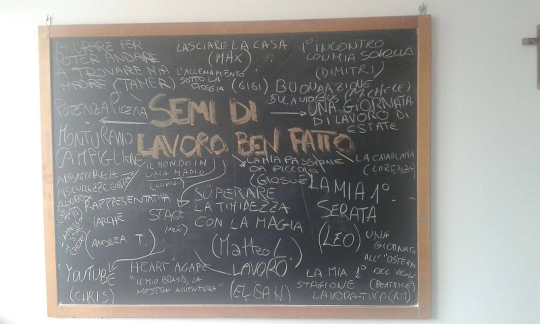 LASCIARE LA CASA
(MAX)
1° INCONTRO
CON MIA SORELLA
(DIMITRI)
POTER ANDARE
A TROVARE MIA
MADRE (TAMER)
L'ALLENAMENTO
SOTTO LA
PIOGGIA (GIGI)
BUONA AZIONE
(MICHELE)
POTENZA PICENA
SEMI DI
LAVORO BEN FATTO
UNA GIORNATA
DI LAVORO DI
ESTATE
MONTURANO
CAMPIGLIONE
IL MONDO IN
UNA MANO
LA MIA PASSIONE
DA PICCOLO
(GIOSUÈ)
LA CAVALLINA
(LORENZO)
RAPPRESENTATIVA
MARCHE
(ANDREA T.)
STAGE
SUPERARE
LA TIMIDEZZA
CON LA MAGIA
(Matteo L.)
LA MIA 1°
SERATA
(LEO)
UNA
GIORNATA
ALL'"OSTERIA
YOUTUBE
(CHRIS)
HEART AGAPE
"IL MIO BRAND, LA
NOSTRA AVVENTURA"
LAVORO
(ELSAN)
LA MIA 1°
STAGIONE (BEATRICE)
LAVORATIVA (RM)